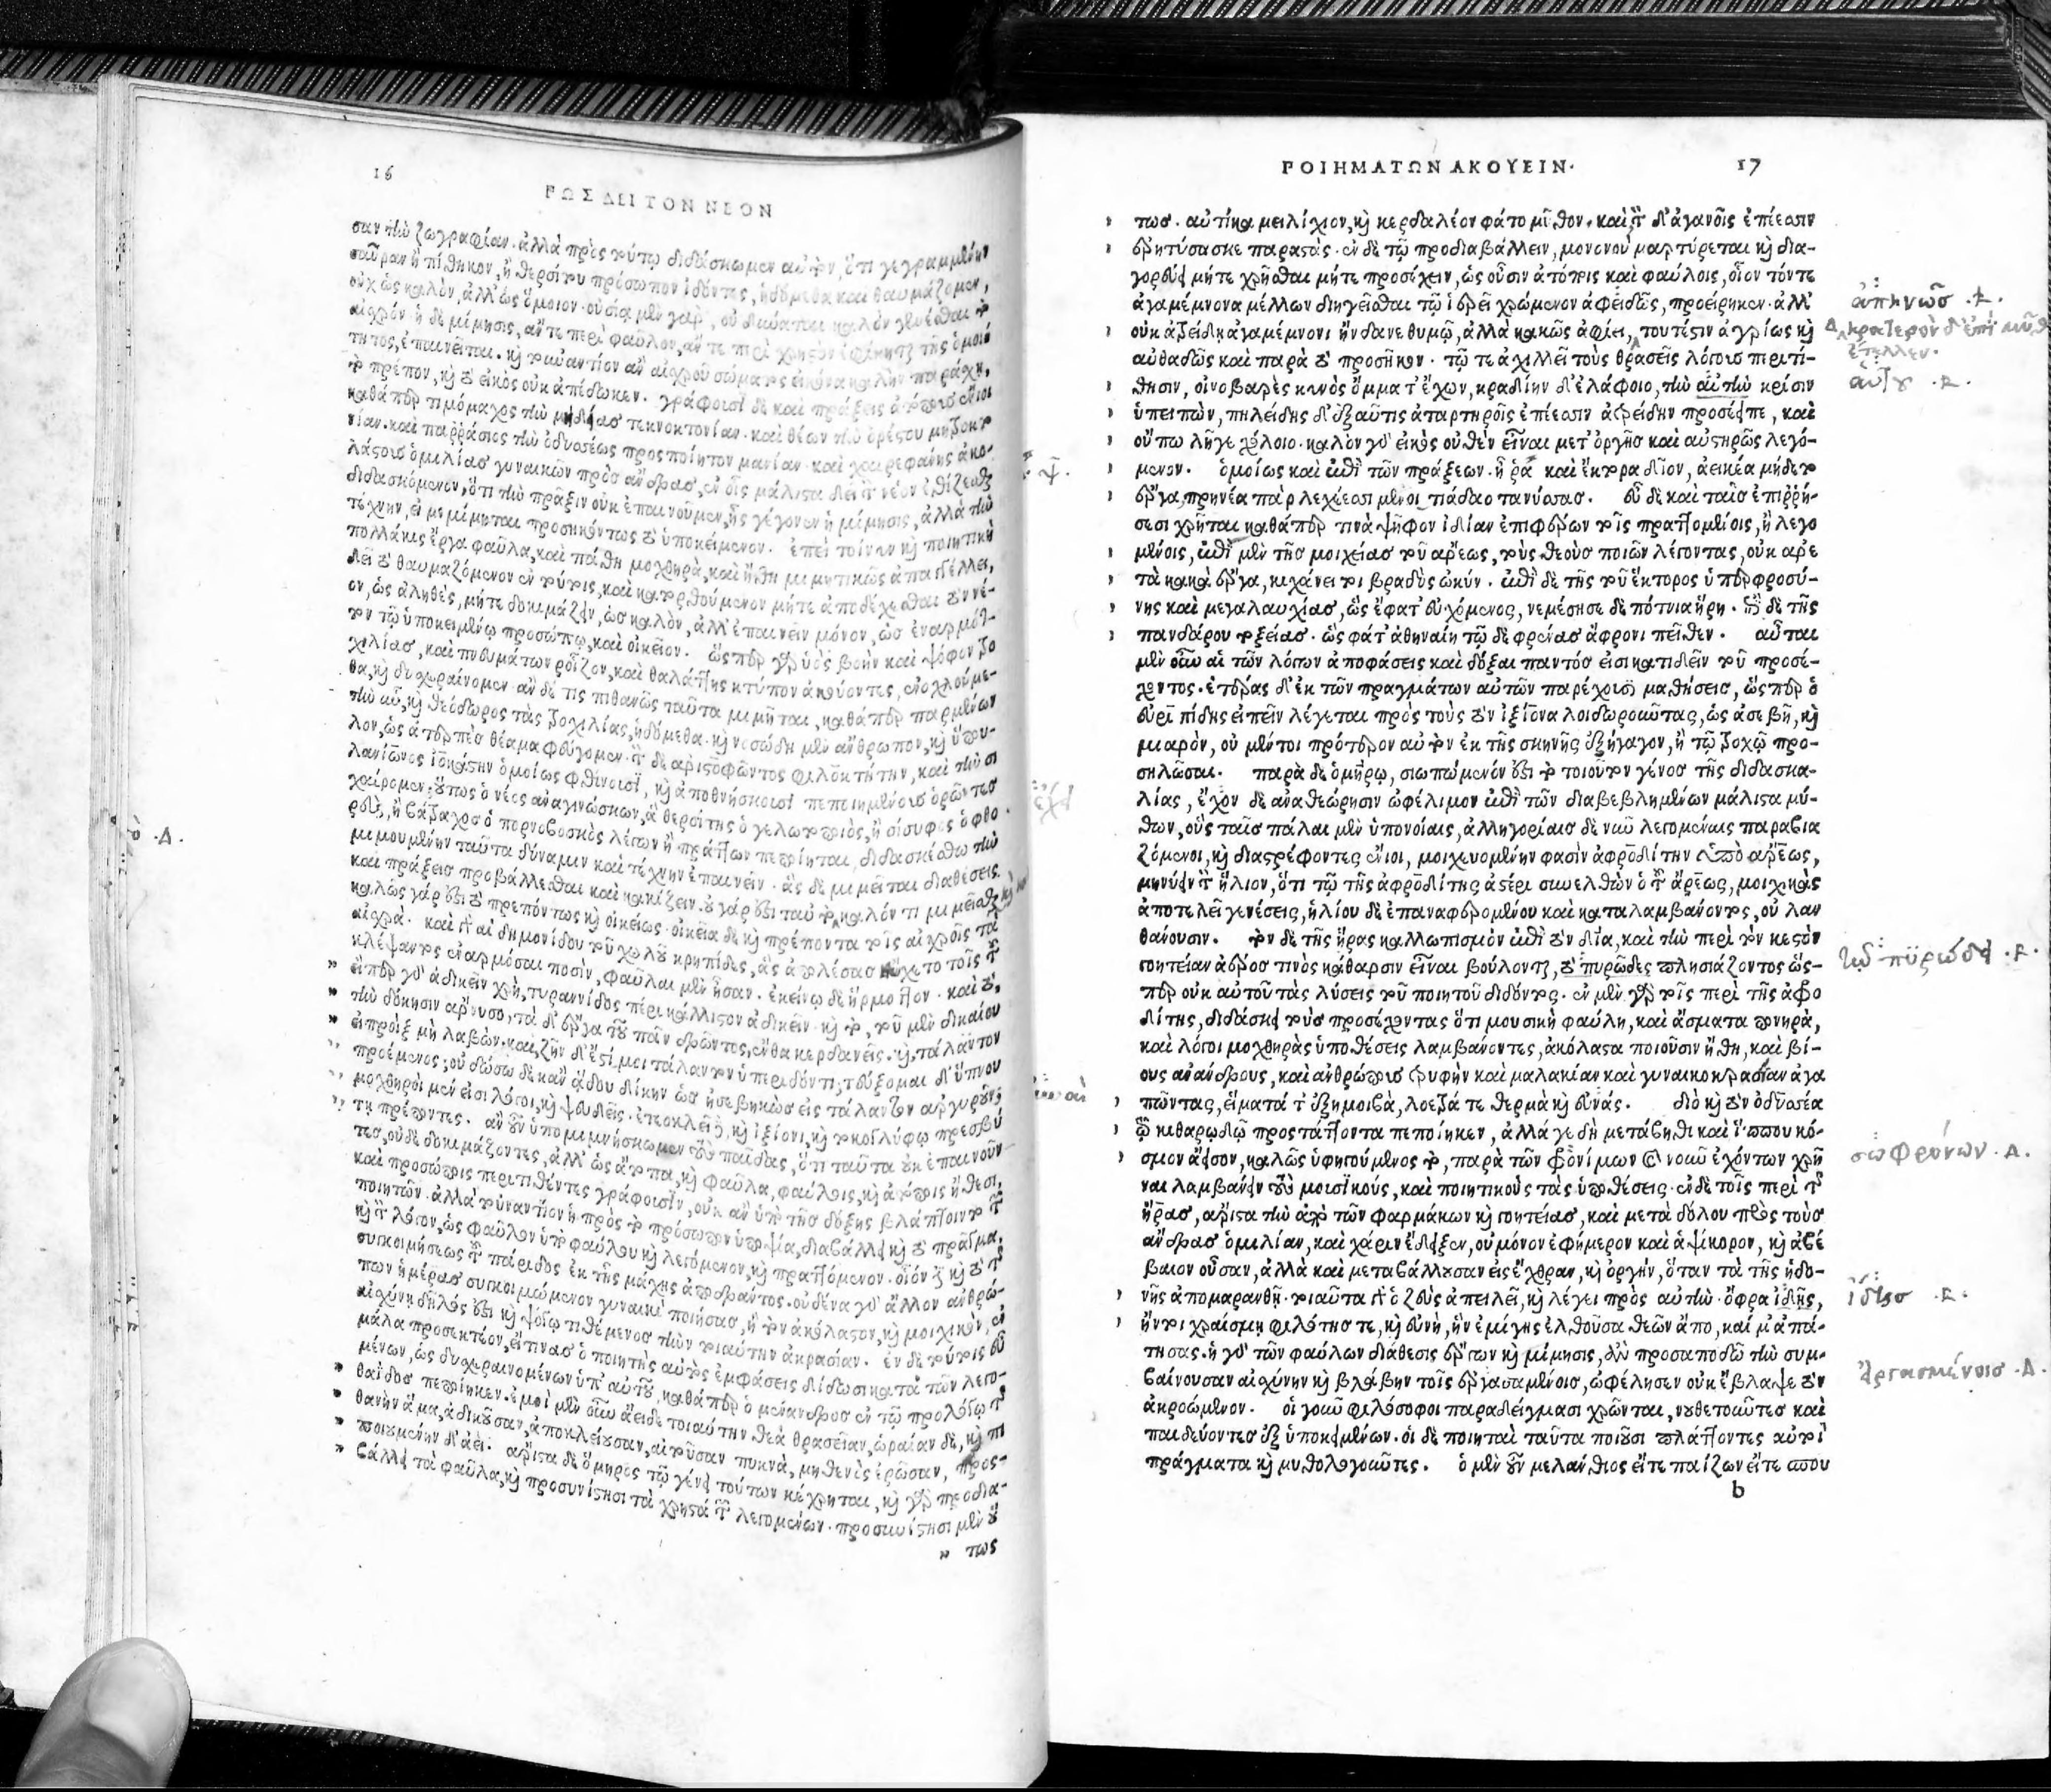 16
ΠΩΣ ΔΕΙ ΤΟΝ ΝΕΟΝ
σαν τὴν ζωγραφίαν. ἀλλὰ πρὸς τούτῳ διδάσκωμεν αὐτὸν, ὅτι γεγραμμένην
σαῦραν ἢ πίθηκον, ἢ θερσίτου πρόσωπον ἰδόντες, ἡδόμεθα καὶ θαυμάζομεν,
οὐχ ὡς καλὸν, ἀλλ' ὡς ὅμοιον. οὐσίᾳ μὲν γὰρ, οὐ δύναται καλὸν γενέσθαι τὸ
αἰχρόν. ἡ δὲ μίμησις, ἄντε περὶ φαῦλον, ἄν τε περὶ χρηστὸν ἐφίκηται τῆς ὁμοιό
τητος, ἐπαινεῖται. καὶ τοὐναντίον ἂν αἰχροῦ σώματος εἰκόνα καλὴν παράχῃ,
τὸ πρέπον, καὶ τὸ εἰκὸς οὐκ ἀπέδωκεν. γράφουσι δὲ καὶ πράξεις ἀτόπους ἔνιοι
καθάπερ τιμόμαχος τὴν μηδείας τεκνοκτονίαν. καὶ θέων τὴν ὀρέστου μητροκτο
νίαν. καὶ παῤῥάσιος τὴν ὀδυσσέως προσποίητον μανίαν. καὶ χαιρεφάνης ἀκο-
λάστους ὁμιλίας γυναικῶν πρὸς ἄνδρας, ἐν οἷς μάλιστα δεῖ τὸν νέον ἐθίζεσθαι
διδασκόμενον, ὅτι τὴν πρᾶξιν οὐκ ἐπαινοῦμεν, ἧς γέγονεν ἡ μίμησις, ἀλλὰ τὴν
τέχνην, εἰ μεμίμηται προσηκόντως τὸ ὑποκείμενον. ἐπεὶ τοίνυν καὶ ποιητικὴ
πολλάκις ἔργα φαῦλα, καὶ πάθη μοχθηρὰ, καὶ ἤθη μιμητικῶς ἀπαγγέλλει,
δεῖ τὸ θαυμαζόμενον ἐν τούτοις, καὶ κατορθούμενον μήτε ἀποδέχεσθαι τὸν νέ-
ον, ὡς ἀληθὲς, μήτε δοκιμάζειν, ὡς καλὸν, ἀλλ' ἐπαινεῖν μόνον, ὡς ἐναρμότ-
τον τῷ ὑποκειμένῳ προσώπῳ, καὶ οἰκεῖον. ὥσπερ γὰρ ὑὸς βοὴν καὶ ψόφον τρο
χιλίας, καὶ πνευμάτων ῥοῖζον, καὶ θαλάττης κτύπον ἀκούοντες, ἐνοχλούμε-
θα, καὶ δυχεραίνομεν. ἂν δέ τις πιθανῶς ταῦτα μιμῆται, καθάπερ παρμένων
τὴν ὗν, καὶ θεόδωρος τὰς τροχιλίας, ἡδόμεθα. καὶ νοσώδη μὲν ἄνθρωπον, καὶ ὕπου-
λον, ὡς ἀτερπὲς θέαμα φεύγομεν. τὸν δὲ ἀριστοφῶντος φιλοκτήτην, καὶ τὴν σι
λανίωνος ἰοκάστην ὁμοίως φθίνουσι, καὶ ἀποθνήσκουσι πεποιημένους ὁρῶντες
χαίρομεν, οὕτως ὁ νέος ἀναγινώσκων, ἃ θερσίτης ὁ γελωτοποιὸς, ἢ σίσυφος ὁ φθο
ρεὺς, ἢ βάτραχος ὁ πορνοβοσκὸς λέγων ἢ πράττων πεποίηται, διδασκέσθω τὴν
μιμουμένην ταῦτα δύναμιν καὶ τέχνην ἐπαινεῖν. ἃς δὲ μιμεῖται διαθέσεις
καὶ πράξεις προβάλλεσθαι καὶ κακίζειν. οὐ γάρ ἐστι ταὐτὸ, καλόν τι μιμεῖσθαι
καλῶς γάρ ἐστι τὸ πρεπόντως καὶ οἰκείως. οἰκεῖα δὲ καὶ πρέποντα τοῖς αἰχροῖς τὰ
αἰχρά. καὶ γὰρ αἱ δημονίδου τοῦ χωλοῦ κρηπίδες, ἃς ἀπολέσας ηὔχετο τοῖς τοῦ
κλέψαντος ἐναρμόσαι ποσὶν, φαῦλαι μὲν ἦσαν. ἐκείνῳ δὲ ἥρμοττον. καὶ τὸ,
» εἴπερ γὰρ ἀδικεῖν χρὴ, τυραννίδος πέρι κάλλιστον ἀδικεῖν. καὶ τὸ, τοῦ μὲν δικαίου
» τὴν δόκησιν ἄρνυσο, τὰ δ' ἔργα τοῦ πᾶν δρῶντος, ἔνθα κερδανεῖς. καὶ, τάλαντον
» ἡ προίξ μὴ λαβών. καὶ, ζῆν δ' ἔστι μοι τάλαντον ὑπεριδόντι; τεύξομαι δ' ὕπνου
» προέμενος; οὐ δώσω δὲ κἂν ᾅδου δίκην ὡς ἠσεβηκὼς εἰς τάλαντον ἀργυροῦν;
» μοχθηροὶ μέν εἰσι λόγοι, καὶ ψευδεῖς. ἐτεοκλεῖ δὲ, καὶ ἰξίονι, καὶ τοκογλύφῳ πρεσβύ
» τῃ πρέποντες. ἂν οὖν ὑπομιμνήσκωμεν τοὺς παῖδας, ὅτι ταῦτα οὐκ ἐπαινοῦν-
τες, οὐδὲ δοκιμάζοντες, ἀλλ' ὡς ἄτοπα, καὶ φαῦλα, φαύλοις, καὶ ἀτόποις ἤθεσι,
καὶ προσώποις περιτιθέντες γράφουσιν, οὐκ ἂν ὑπὸ τῆς δόξης βλάπτοιντο τῶν
ποιητῶν. ἀλλὰ τοὐναντίον ἡ πρὸς τὸ πρόσωπον ὑποψία, διαβάλλει καὶ τὸ πρᾶγμα,
καὶ τὸν λόγον, ὡς φαῦλον ὑπὸ φαύλου καὶ λεγόμενον, καὶ πραττόμενον. οἷόν ἐστι καὶ τὸ τῆς
συγκοιμήσεως τοῦ πάριδος ἐκ τῆς μάχης ἀποδράντος. οὐδένα γὰρ ἄλλον ἀνθρώ-
πων ἡμέρας συγκοιμώμενον γυναικὶ ποιήσας, ἢ τὸν ἀκόλαστον, καὶ μοιχικὸν, ἐν
αἰχύνῃ δηλός ἐστι καὶ ψόγῳ τιθέμενος τὴν τοιαύτην ἀκρασίαν. ἐν δὲ τούτοις εὖ
μάλα προσεκτέον, εἴ τινας ὁ ποιητὴς αὐτὸς ἐμφάσεις δίδωσι κατὰ τῶν λεγο-
μένων, ὡς δυχεραινομένων ὑπ' αὐτοῦ, καθάπερ ὁ μένανδρος ἐν τῷ προλόγῳ τῆς
» θαΐδος πεποίηκεν. ἐμοὶ μὲν οὖν ἄειδε τοιαύτην θεὰ θρασεῖαν, ὡραίαν δὲ, καὶ πι
» θανὴν ἅμα, ἀδικοῦσαν, ἀποκλείουσαν, αἰτοῦσαν πυκνὰ, μηθενὸς ἐρῶσαν, προσ-
» ποιουμένην δ' ἀεί. ἄριστα δὲ ὅμηρος τῷ γένει τούτων κέχρηται, καὶ γὰρ προδια-
» βάλλει τὰ φαῦλα, καὶ προσυνίστησι τὰ χρηστὰ τῶν λεγομένων. προσυνίστησι μὲν οὕ
» τως
ὁ .Δ.
ΠΟΙΗΜΑΤΩΝ ΑΚΟΥΕΙΝ.
17
τως. αὐτίκα μειλίχιον, καὶ κερδαλέον φάτο μῦθον. καὶ, τὸν δ' ἀγανοῖς ἐπέεσιν
ἐρητύσασκε παραστάς. ἐν δὲ τῷ προδιαβάλλειν, μονονοὺ μαρτύρεται καὶ δια-
γορεύει μήτε χρῆσθαι μήτε προσέχειν, ὡς οὖσιν ἀτόποις καὶ φαύλοις, οἷον τόν τε
ἀγαμέμνονα μέλλων διηγεῖσθαι τῷ ἱερεῖ χρώμενον ἀφειδῶς, προείρηκεν. ἀλλ'
οὐκ ἀτρείδῃ ἀγαμέμνονι ἥνδανε θυμῷ, ἀλλὰ κακῶς ἀφίει, τουτέστιν ἀγρίως καὶ
αὐθαδῶς καὶ παρὰ τὸ προσῆκον. τῷ τε ἀχιλλεῖ τοὺς θρασεῖς λόγους περιτί-
θησιν, οἰνοβαρὲς κυνὸς ὄμματ' ἔχων, κραδίην δ' ἐλάφοιο, τὴν αὐτὴν κρίσιν
ὑπειπὼν, πηλείδης δ' ἐξαῦτις ἀταρτηροῖς ἐπέεσιν ἀτρείδην προσέειπε, καὶ
οὔπω λῆγε χόλοιο. καλὸν γὰρ εἰκὸς οὐθὲν εἶναι μετ' ὀργῆς καὶ αὐστηρῶς λεγό-
μενον. ὁμοίως καὶ ἐπὶ τῶν πράξεων. ἦ ῥα καὶ ἕκτορα δῖον, ἀεικέα μήδετο
ἔργα, πρηνέα πὰρ λεχέεσι μενοιτιάδαο τανύσας. εὖ δὲ καὶ ταῖς ἐπιῤῥή-
σεσι χρῆται καθάπερ τινὰ ψῆφον ἰδίαν ἐπιφέρων τοῖς πραττομένοις, ἢ λεγο
μένοις, ἐπὶ μὲν τῆς μοιχείας τοῦ ἄρεως, τοὺς θεοὺς ποιῶν λέγοντας, οὐκ ἀρε
τᾷ κακὰ ἔργα, κιχάνει τοι βραδὺς ὠκύν. ἐπὶ δὲ τῆς τοῦ ἕκτορος ὑπερφροσύ-
νης καὶ μεγαλαυχίας, ὣς ἔφατ' εὐχόμενος, νεμέσησε δὲ πότνια ἥρη. ἐπὶ δὲ τῆς
πανδάρου τοξείας. ὣς φάτ' ἀθηναίη τῷ δὲ φρένας ἄφρονι πεῖθεν. αὗται
μὲν οὖν αἱ τῶν λόγων ἀποφάσεις καὶ δόξαι παντός εἰσι κατιδεῖν τοῦ προσέ-
χοντος. ἑτέρας δ' ἐκ τῶν πραγμάτων αὐτῶν παρέχουσι μαθήσεις, ὥσπερ ὁ
εὐριπίδης εἰπεῖν λέγεται πρὸς τοὺς τὸν ἰξίονα λοιδωροῦντας, ὡς ἀσεβῆ, καὶ
μιαρὸν, οὐ μέντοι πρότερον αὐτὸν ἐκ τῆς σκηνῆς ἐξήγαγον, ἢ τῷ τροχῷ προ-
σηλῶσαι. παρὰ δὲ ὁμήρῳ, σιωπώμενόν ἐστι τὸ τοιοῦτον γένος τῆς διδασκα-
λίας, ἔχον δὲ ἀναθεώρησιν ὠφέλιμον ἐπὶ τῶν διαβεβλημένων μάλιστα μύ-
θων, οὓς ταῖς πάλαι μὲν ὑπονοίαις, ἀλληγορίαις δὲ νῦν λεγομέναις παραβια
ζόμενοι, καὶ διαστρέφοντες ἔνιοι, μοιχευομένην φασὶν ἀφροδίτην ὑπὸ ἄρεως,
μηνύειν τὸν ἥλιον, ὅτι τῷ τῆς ἀφροδίτης ἀστέρι συνελθὼν ὁ τοῦ ἄρεως, μοιχικὰς
ἀποτελεῖ γενέσεις, ἡλίου δὲ ἐπαναφερομένου καὶ καταλαμβάνοντος, οὐ λαν
θάνουσιν. τὸν δὲ τῆς ἥρας καλλωπισμὸν ἐπὶ τὸν δία, καὶ τὴν περὶ τὸν κεστὸν
γοητείαν ἀέρος τινὸς κάθαρσιν εἶναι βούλονται, τὸ πυρῶδες πλησιάζοντος ὥς-
περ οὐκ αὐτοῦ τὰς λύσεις τοῦ ποιητοῦ διδόντος. ἐν μὲν γὰρ τοῖς περὶ τῆς ἀφρο
δίτης, διδάσκει τοὺς προσέχοντας ὅτι μουσικὴ φαύλη, καὶ ᾄσματα πονηρὰ,
καὶ λόγοι μοχθηρὰς ὑποθέσεις λαμβάνοντες, ἀκόλαστα ποιοῦσιν ἤθη, καὶ βί-
ους ἀνάνδρους, καὶ ἀνθρώπους τρυφὴν καὶ μαλακίαν καὶ γυναικοκρασίαν ἀγα
πῶντας, εἵματά τ' ἐξημοιβὰ, λοετρά τε θερμὰ καὶ εὐνάς. διὸ καὶ τὸν ὀδυσσέα
τῷ κιθαρῳδῷ προστάττοντα πεποίηκεν, ἀλλά γε δὴ μετάβηθι καὶ ἵππου κό-
σμον ἄεισον, καλῶς ὑφηγούμενος τὸ, παρὰ τῶν φρονίμων καὶ νοῦν ἐχόντων χρῆ
ναι λαμβάνειν τοὺς μουσικοὺς, καὶ ποιητικοὺς τὰς ὑποθέσεις. ἐν δὲ τοῖς περὶ τῆς
ἥρας, ἄριστα τὴν ἀπὸ τῶν φαρμάκων καὶ γοητείας, καὶ μετὰ δόλου πρὸς τοὺς
ἄνδρας ὁμιλίαν, καὶ χάριν ἔδειξεν, οὐ μόνον ἐφήμερον καὶ ἁψίκορον, καὶ ἀβέ
βαιον οὖσαν, ἀλλὰ καὶ μεταβάλλουσαν εἰς ἔχθραν, καὶ ὀργὴν, ὅταν τὰ τῆς ἡδο-
νῆς ἀπομαρανθῇ. τοιαῦτα γὰρ ὁ ζεὺς ἀπειλεῖ, καὶ λέγει πρὸς αὐτήν. ὄφρα ἰδῇς,
ἤν τοι χραίσμῃ φιλότης τε, καὶ εὐνὴ, ἣν ἐμίγης ἐλθοῦσα θεῶν ἄπο, καί μ' ἀπά-
τησας. ἡ γὰρ τῶν φαύλων διάθεσις ἔργων καὶ μίμησις, ἂν προσαποδῷ τὴν συμ-
βαίνουσαν αἰχύνην καὶ βλάβην τοῖς ἐργασαμένοις, ὠφέλησεν οὐκ ἔβλαψε τὸν
ἀκροώμενον. οἱ γοῦν φιλόσοφοι παραδείγμασι χρῶνται, νουθετοῦντες καὶ
παιδεύοντες ἐξ ὑποκειμένων. οἱ δὲ ποιηταὶ ταῦτα ποιοῦσι πλάττοντες αὐτοὶ
πράγματα καὶ μυθολογοῦντες. ὁ μὲν οὖν μελάνθιος εἴτε παίζων εἴτε σπου
b
ἀπηνῶς .κ.
κρατερὸν δ' ἐπὶ μῦθ
ἔτελλεν.
αὐτοῦ .κ.
πυρώδει .κ.
σωφρόνων .Δ.
ἴδηις .κ.
ἐργασμένοις .Δ.